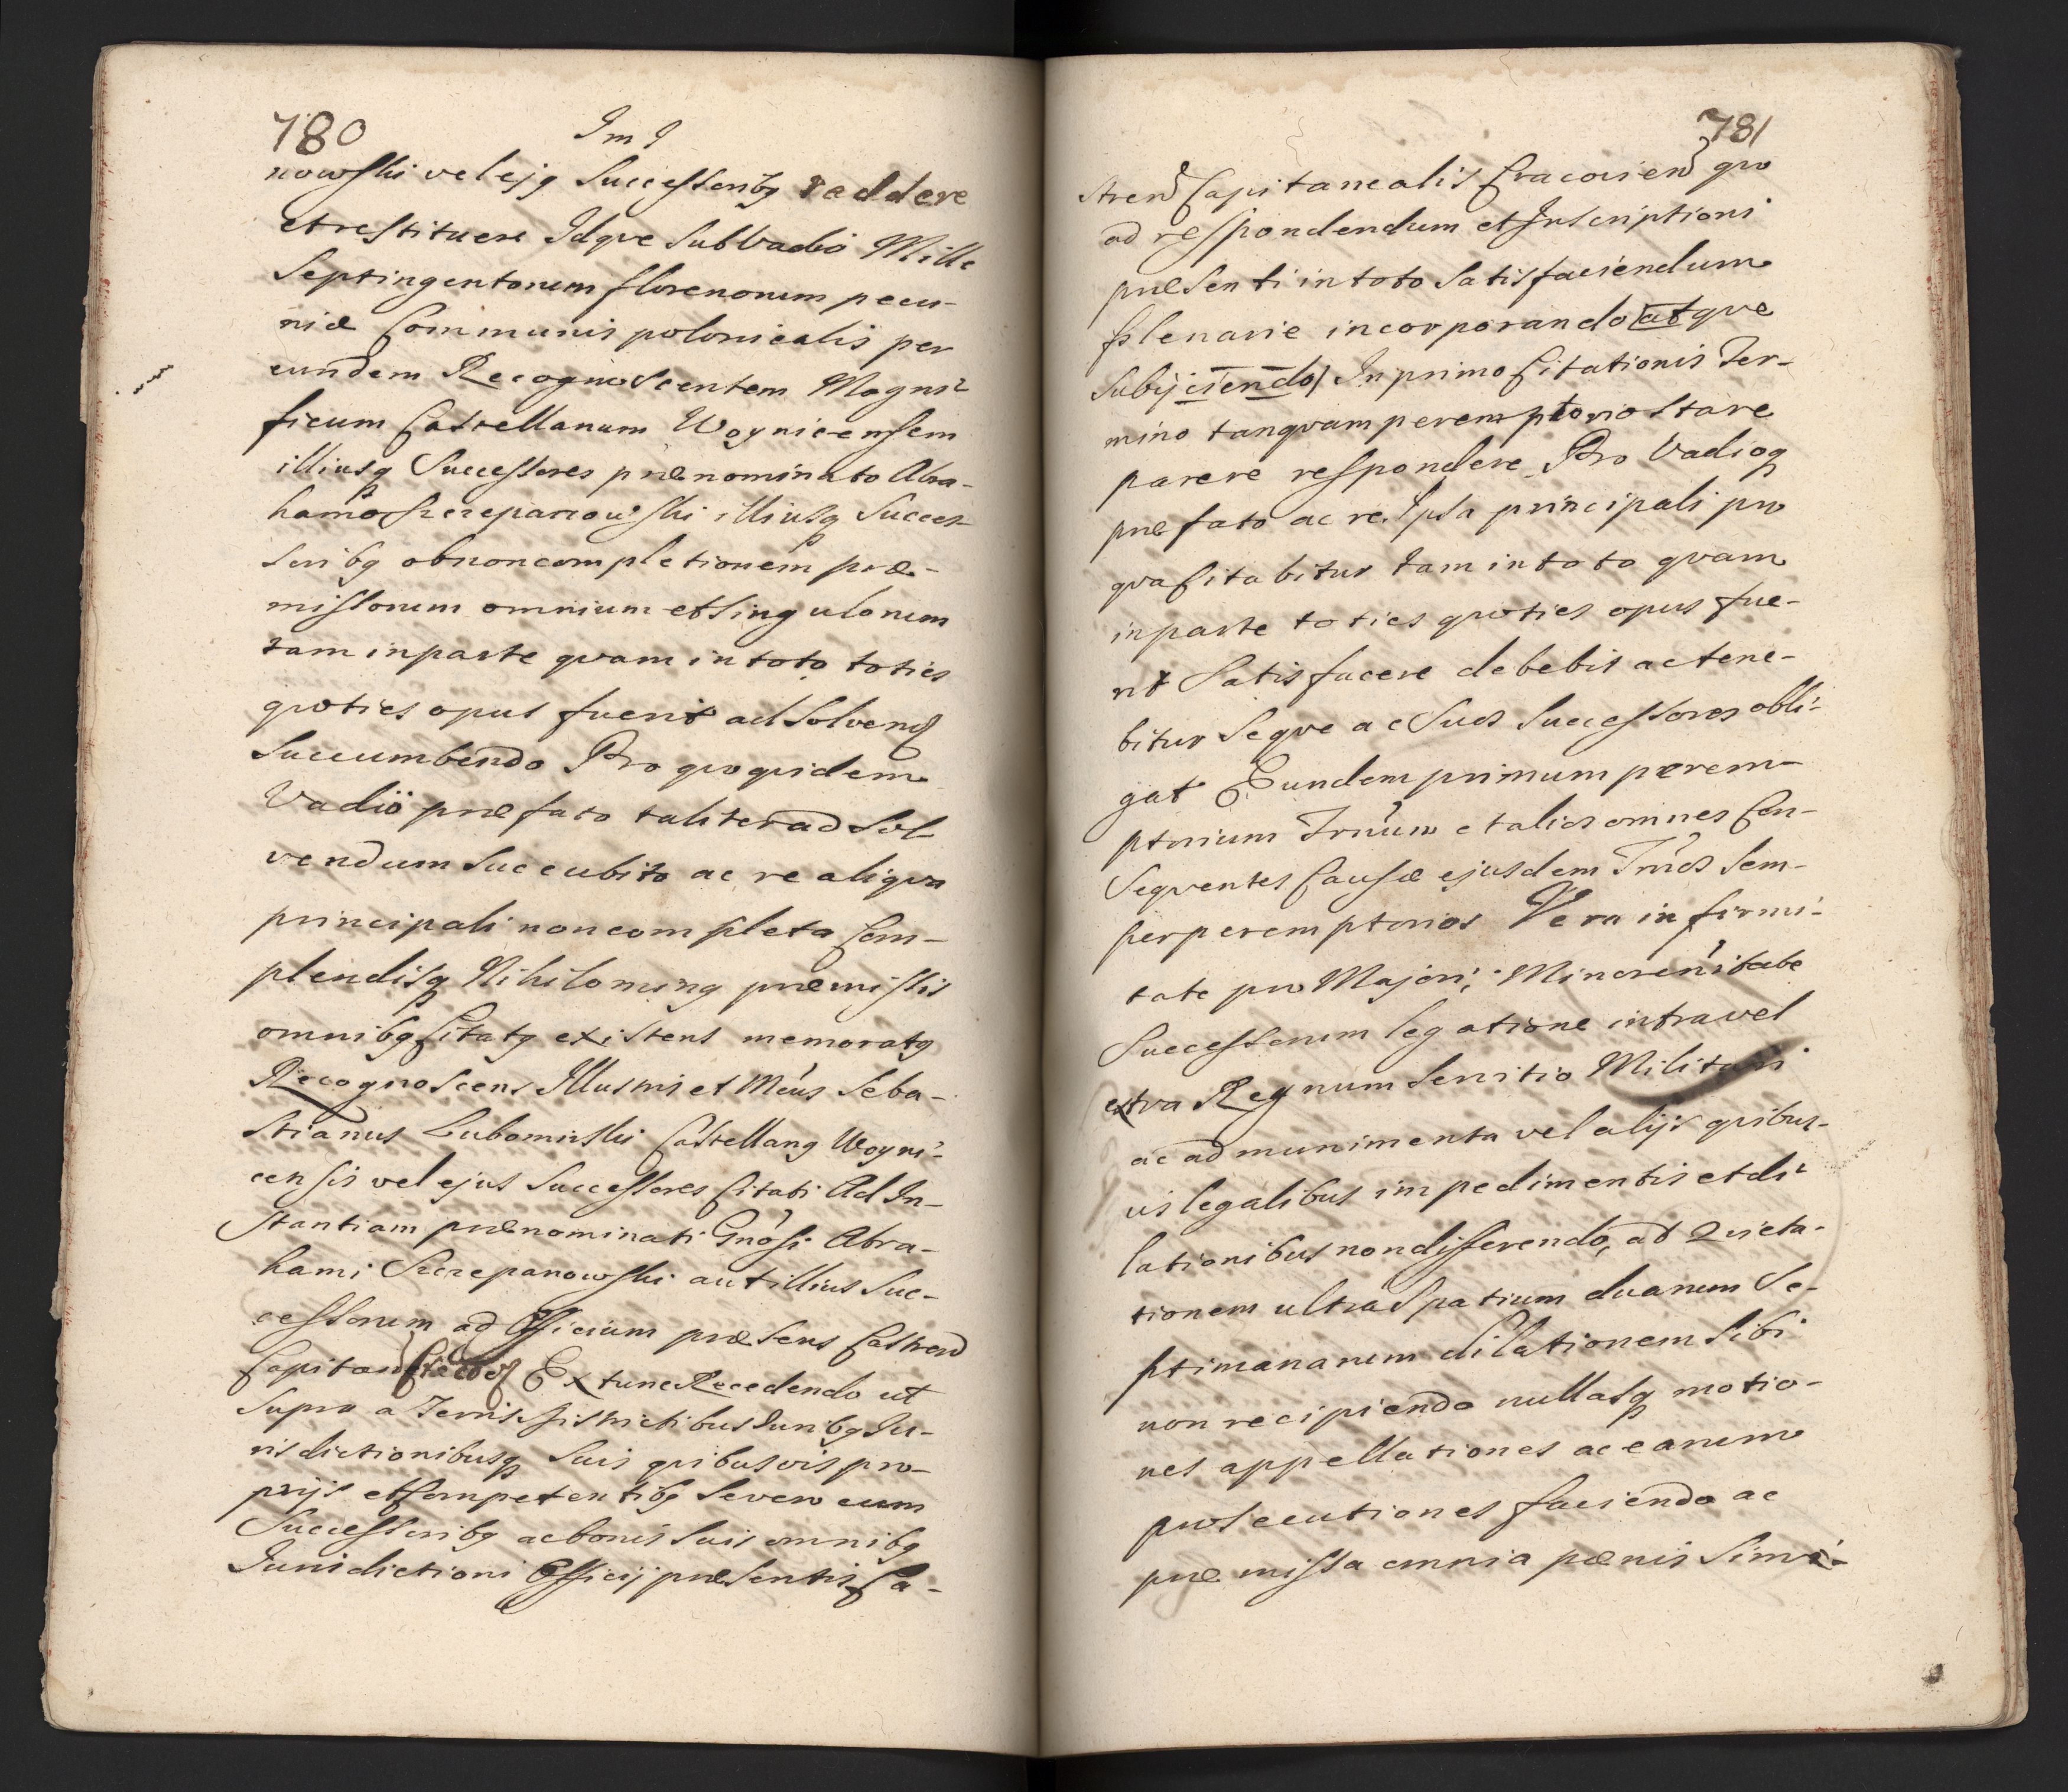 780
Im I
nowski vel ejq Successoribq reddere
et restituere Idqve Sub Vadio Mille
Septingentorum florenorum pecu-
niæ Communis polonicalis per
eundem Recognoscentem Magni-
ficum Castellanum Woynicensem
illiusq Successores prænominato Abra-
hamo Szczepanowski illiusq Succes-
soribq ob non completionem præ-
missorum omnium et Singulorum
tam in parte qvam in toto toties
qvoties opus fuerit ad Solvend
Succumbendo Pro qvo qvidem
Vadio præfato taliter ad Sol-
vendum Succubito ac re aliqva
principali non completa Com-
plendisq Nihilominq præmissis
omnibq Citatq existens memoratq
Recognoscens Illustris et Mcus Seba-
stianus Lubomirski Castellanq Woyni-
censis vel ejus Successores Citati Ad In-
stantiam prænominati Gnosi Abra-
hami Szczepanowski aut illius Suc-
cessorum ad Officium præsens Castren
Capitan Extunc Recedendo ut
Supra a Terris Districtibus Juribq Ju-
risdictionibusq Suis qvibusvis pro-
prijs et Competentibq Se vero cum
Successoribq ac bonis Suis omnibq
Jurisdictioni Officij præsentis Ca-
781
stren Capitanealis Cracovien qvo
ad respondendum et Inscriptioni
præsenti in toto Satisfaciendum
plenarie incorporando atqve
Subijciendo In primo Citationis Ter-
mino tanqvam peremptorio Stare
parere respondere Pro Vadioq
præfato ac re Ipsa principali pro
qva Citabitur tam in toto qvam
in parte toties qvoties opus fue-
rit Satisfacere debebit ac tene-
bitur Seqve ac Suos Successores obli-
gat Eundem primum perem-
ptorium Trnum et alios omnes Con-
Seqventes Causæ ejusdem Trnos Sem-
per peremptorios Vera infirmi-
tate pro Majori, Minorenitate
Successorum legatione intra vel
extra Regnum Servitio Militari
ac ad munimenta vel alijs qvibus-
vis legalibus impedimentis et di-
lationibus non differendo, ad Qvieta-
tionem ultra Spatium duarum Se-
ptimanarum dilationem Sibi
non recipiendo nullasq motio-
nes appellationes ac earum
prosecutiones faciendo ac
præmissa omnia pænis Simi-